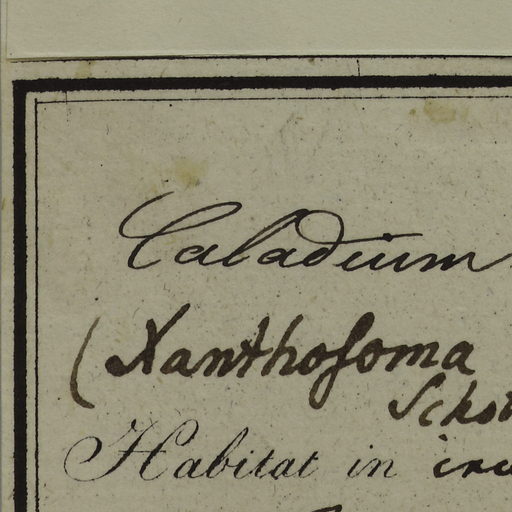 Caladium
(Xanthosoma
Habitat in